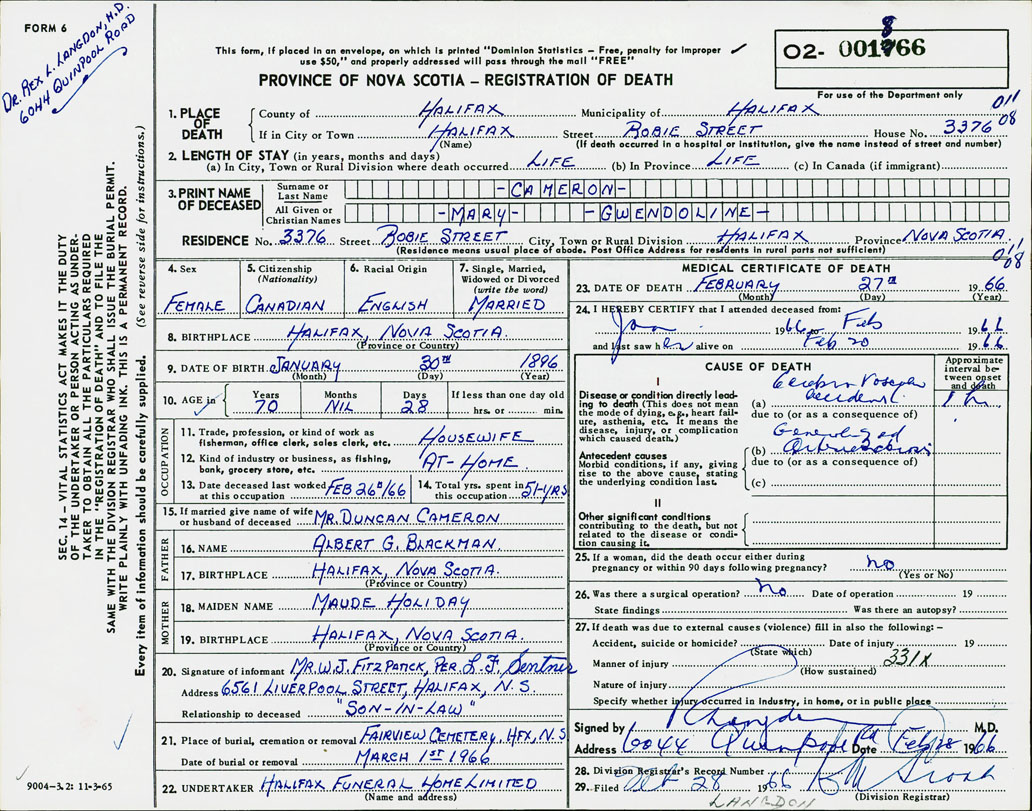 FORM 6
DR. REX L. LANGDON, M.D.
6044 QUINPOOL ROAD
This form, if placed in an envelope, on which is printed "Dominion Statistics – Free, penalty for improper
use $50," and properly addressed will pass through the mail "FREE"
PROVINCE OF NOVA SCOTIA – REGISTRATION OF DEATH
02- 001866
For use of the Department only
SEC. 14 – VITAL STATISTICS ACT MAKES IT THE DUTY
OF THE UNDERTAKER OR PERSON ACTING AS UNDER-
TAKER TO OBTAIN ALL THE PARTICULARS REQUIRED
IN THE "REGISTRATION OF DEATH" AND TO FILE THE
SAME WITH THE DIVISION REGISTRAR WHO SHALL ISSUE THE BURIAL PERMIT.
WRITE PLAINLY WITH UNFADING INK. THIS IS A PERMANENT RECORD.
Every item of information should be carefully supplied. (See reverse side for instructions.)
1. PLACE OF DEATH
County of HALIFAX Municipality of HALIFAX 011 08
If in City or Town HALIFAX Street ROBIE STREET House No. 3376
(Name) (If death occurred in a hospital or institution, give the name instead of street and number)
2. LENGTH OF STAY (in years, months and days)
(a) In City, Town or Rural Division where death occurred LIFE (b) In Province LIFE (c) In Canada (if immigrant)
3. PRINT NAME OF DECEASED
Surname or Last Name -CAMERON-
All Given or Christian Names -MARY- -GWENDOLINE-
RESIDENCE No. 3376 Street ROBIE STREET City, Town or Rural Division HALIFAX Province NOVA SCOTIA.
(Residence means usual place of abode. Post Office Address for residents in rural parts not sufficient) 011 08
4. Sex FEMALE
5. Citizenship (Nationality) CANADIAN
6. Racial Origin ENGLISH
7. Single, Married, Widowed or Divorced (write the word) MARRIED
8. BIRTHPLACE HALIFAX, NOVA SCOTIA.
(Province or Country)
9. DATE OF BIRTH JANUARY 30TH 1896
(Month) (Day) (Year)
10. AGE in Years 70 Months NIL Days 28 If less than one day old hrs. or min.
OCCUPATION
11. Trade, profession, or kind of work as fisherman, office clerk, sales clerk, etc. HOUSEWIFE
12. Kind of industry or business, as fishing, bank, grocery store, etc. AT-HOME.
13. Date deceased last worked at this occupation FEB 26th/66
14. Total yrs. spent in this occupation 51-YRS
15. If married give name of wife or husband of deceased MR. DUNCAN CAMERON
FATHER
16. NAME ALBERT G. BLACKMAN.
17. BIRTHPLACE HALIFAX, NOVA SCOTIA.
(Province or Country)
MOTHER
18. MAIDEN NAME MAUDE HOLIDAY
19. BIRTHPLACE HALIFAX, NOVA SCOTIA.
(Province or Country)
20. Signature of informant MR. W.J. FITZPATICK, PER. L.F. Sentner
Address 6561 LIVERPOOL STREET, HALIFAX, N.S.
Relationship to deceased "SON-IN-LAW"
21. Place of burial, cremation or removal FAIRVIEW CEMETERY, HFX, N.S
Date of burial or removal MARCH 1ST 1966
22. UNDERTAKER HALIFAX FUNERAL HOME LIMITED
(Name and address)
9004–3.2: 11-3-65
MEDICAL CERTIFICATE OF DEATH
23. DATE OF DEATH FEBRUARY 27TH 1966
(Month) (Day) (Year)
24. I HEREBY CERTIFY that I attended deceased from:
Jan 1966 to Feb 1966
and last saw her alive on Feb 20 1966
CAUSE OF DEATH
Approximate interval between onset and death
I
Disease or condition directly leading to death (This does not mean the mode of dying, e.g., heart failure, asthenia, etc. It means the disease, injury, or complication which caused death.)
(a) Accident
due to (or as a consequence of)
Antecedent causes
Morbid conditions, if any, giving rise to the above cause, stating the underlying condition last.
(b) Generalized
due to (or as a consequence of)
(c)
II
Other significant conditions contributing to the death, but not related to the disease or condition causing it.
25. If a woman, did the death occur either during pregnancy or within 90 days following pregnancy? no
(Yes or No)
26. Was there a surgical operation? no Date of operation 19
State findings Was there an autopsy?
27. If death was due to external causes (violence) fill in also the following: –
Accident, suicide or homicide? Date of injury 19
(State which)
Manner of injury 331X
(How sustained)
Nature of injury
Specify whether injury occurred in Industry, in home, or in public place
Signed by R Langdon M.D.
Address 6044 Quinpool Rd Date Feb 28 1966
28. Division Registrar's Record Number
29. Filed Feb 28 1966
(Division Registrar)
LANGDON